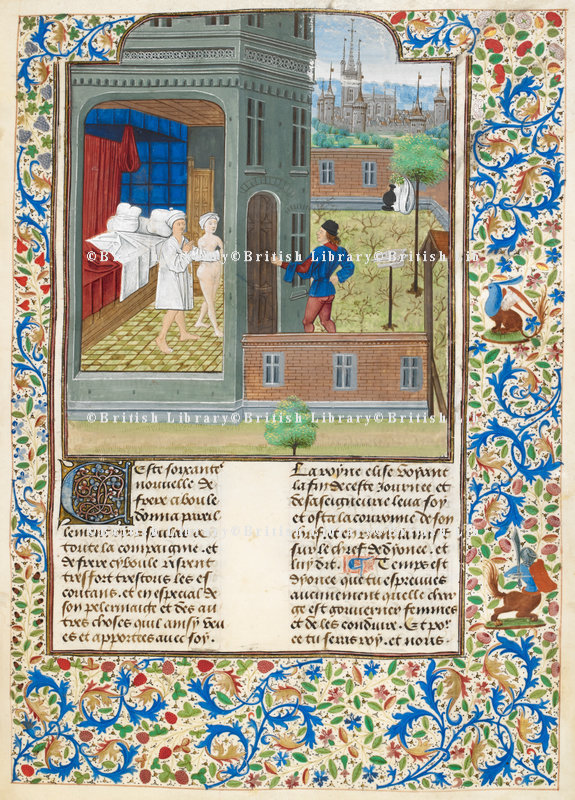 ©British Library©British Library©British
©British Library©British Library©British
Ceste soixante
nouvelle de
frere aboule
donna pareil
lement soulas a
toute la compaignie. et
de frere cyboule risrent
tresfort trestous les es
coutans. et en especial de
son pelerinaige et des au
tres choses quil ainsy veu
es et apportees avec soy.
La royne elise voyant
la fin de ceste journee et
de sa seigneurie leva soy
et osta la couronne de son
chief et en riant la mist
sur le chief de dyonee. et
luy dit. Temps est
dyonee que tu espreuves
aucunement quelle char
ge est gouverner femmes
et de les conduire. Et pour
ce tu seras roy. et nous